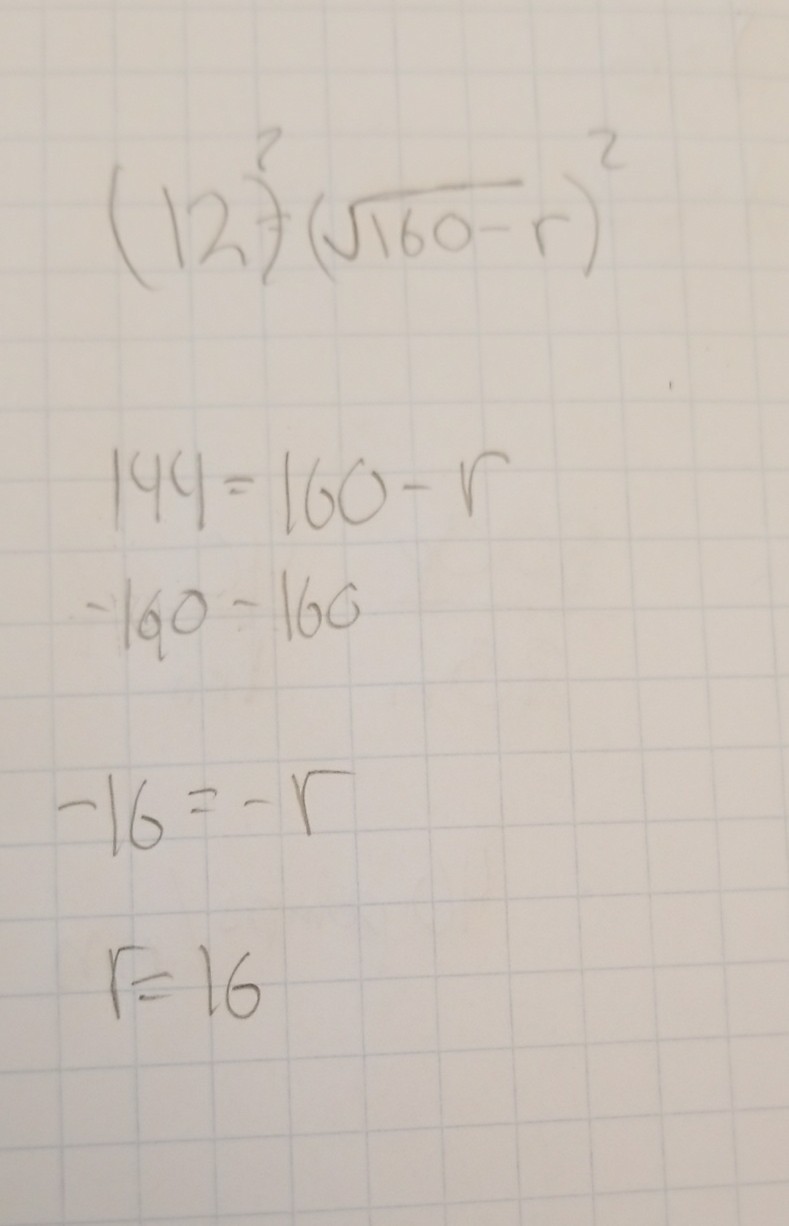 (12)²=(√160-r)²
144=160-r
-160-160
-16=-r
r=16